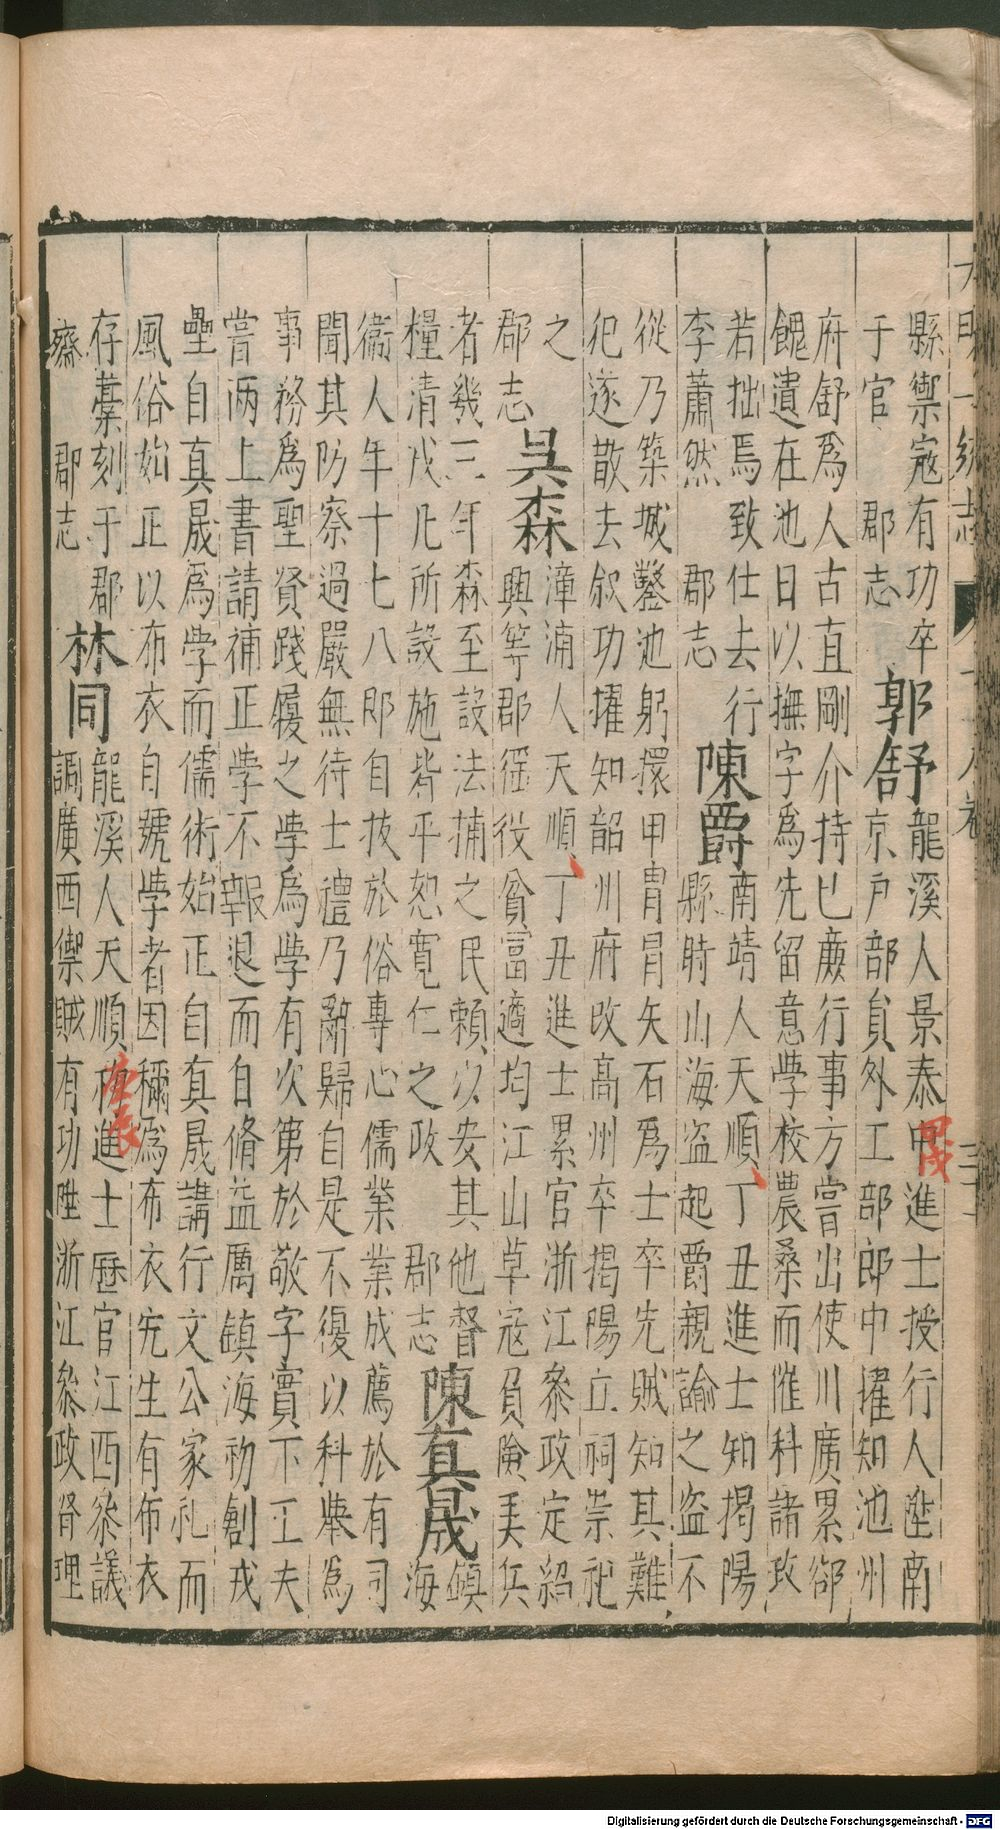 縣禦寇有功卒
于官　郡志
郭舒
龍溪人景泰甲戌進士授行人陞南
京户部員外工部郎中擢知池州
府舒爲人古直剛介持已廉行事方嘗出使川廣累郤
餽遺在池日以撫字爲先留意學校農桑而催科諸政
若拙焉致仕去行
李蕭然　郡志
陳爵
南靖人天順丁丑進士知揭陽
縣時山海盗起爵親諭之盗不
從乃築城鑿池躬擐甲胄冒矢石爲士卒先賊知其難
犯遂散去叙功擢知韶州府改高州卒揭陽立祠崇祀
之
郡志
吳森
漳浦人天順丁丑進士累官浙江叅政定紹
興等郡徭役貧富適均江山草寇負險弄兵
者幾三年森至設法捕之民頼以安其他督
糧清戎凡所設施皆平恕寬仁之政　郡志
陳真晟
鎮
海
衞人年十七八即自拔於俗專心儒業業成薦於有司
聞其防察過嚴無待士禮乃辭歸自是不復以科舉為
事務爲聖賢踐履之學爲學有次第於敬字實下工夫
嘗两上書請補正學不報退而自脩益厲鎮海初創戎
壘自真晟爲學而儒術始正自真晟講行文公家礼而
風俗始正以布衣自號學者因稱爲布衣先生有布衣
存藁刻于郡
齋　郡志
林同
龍溪人天順庚辰進士歷官江西叅議
調廣西禦賊有功陞浙江叅政督理
Digitalisierung gefördert durch die Deutsche Forschungsgemeinschaft - DFG